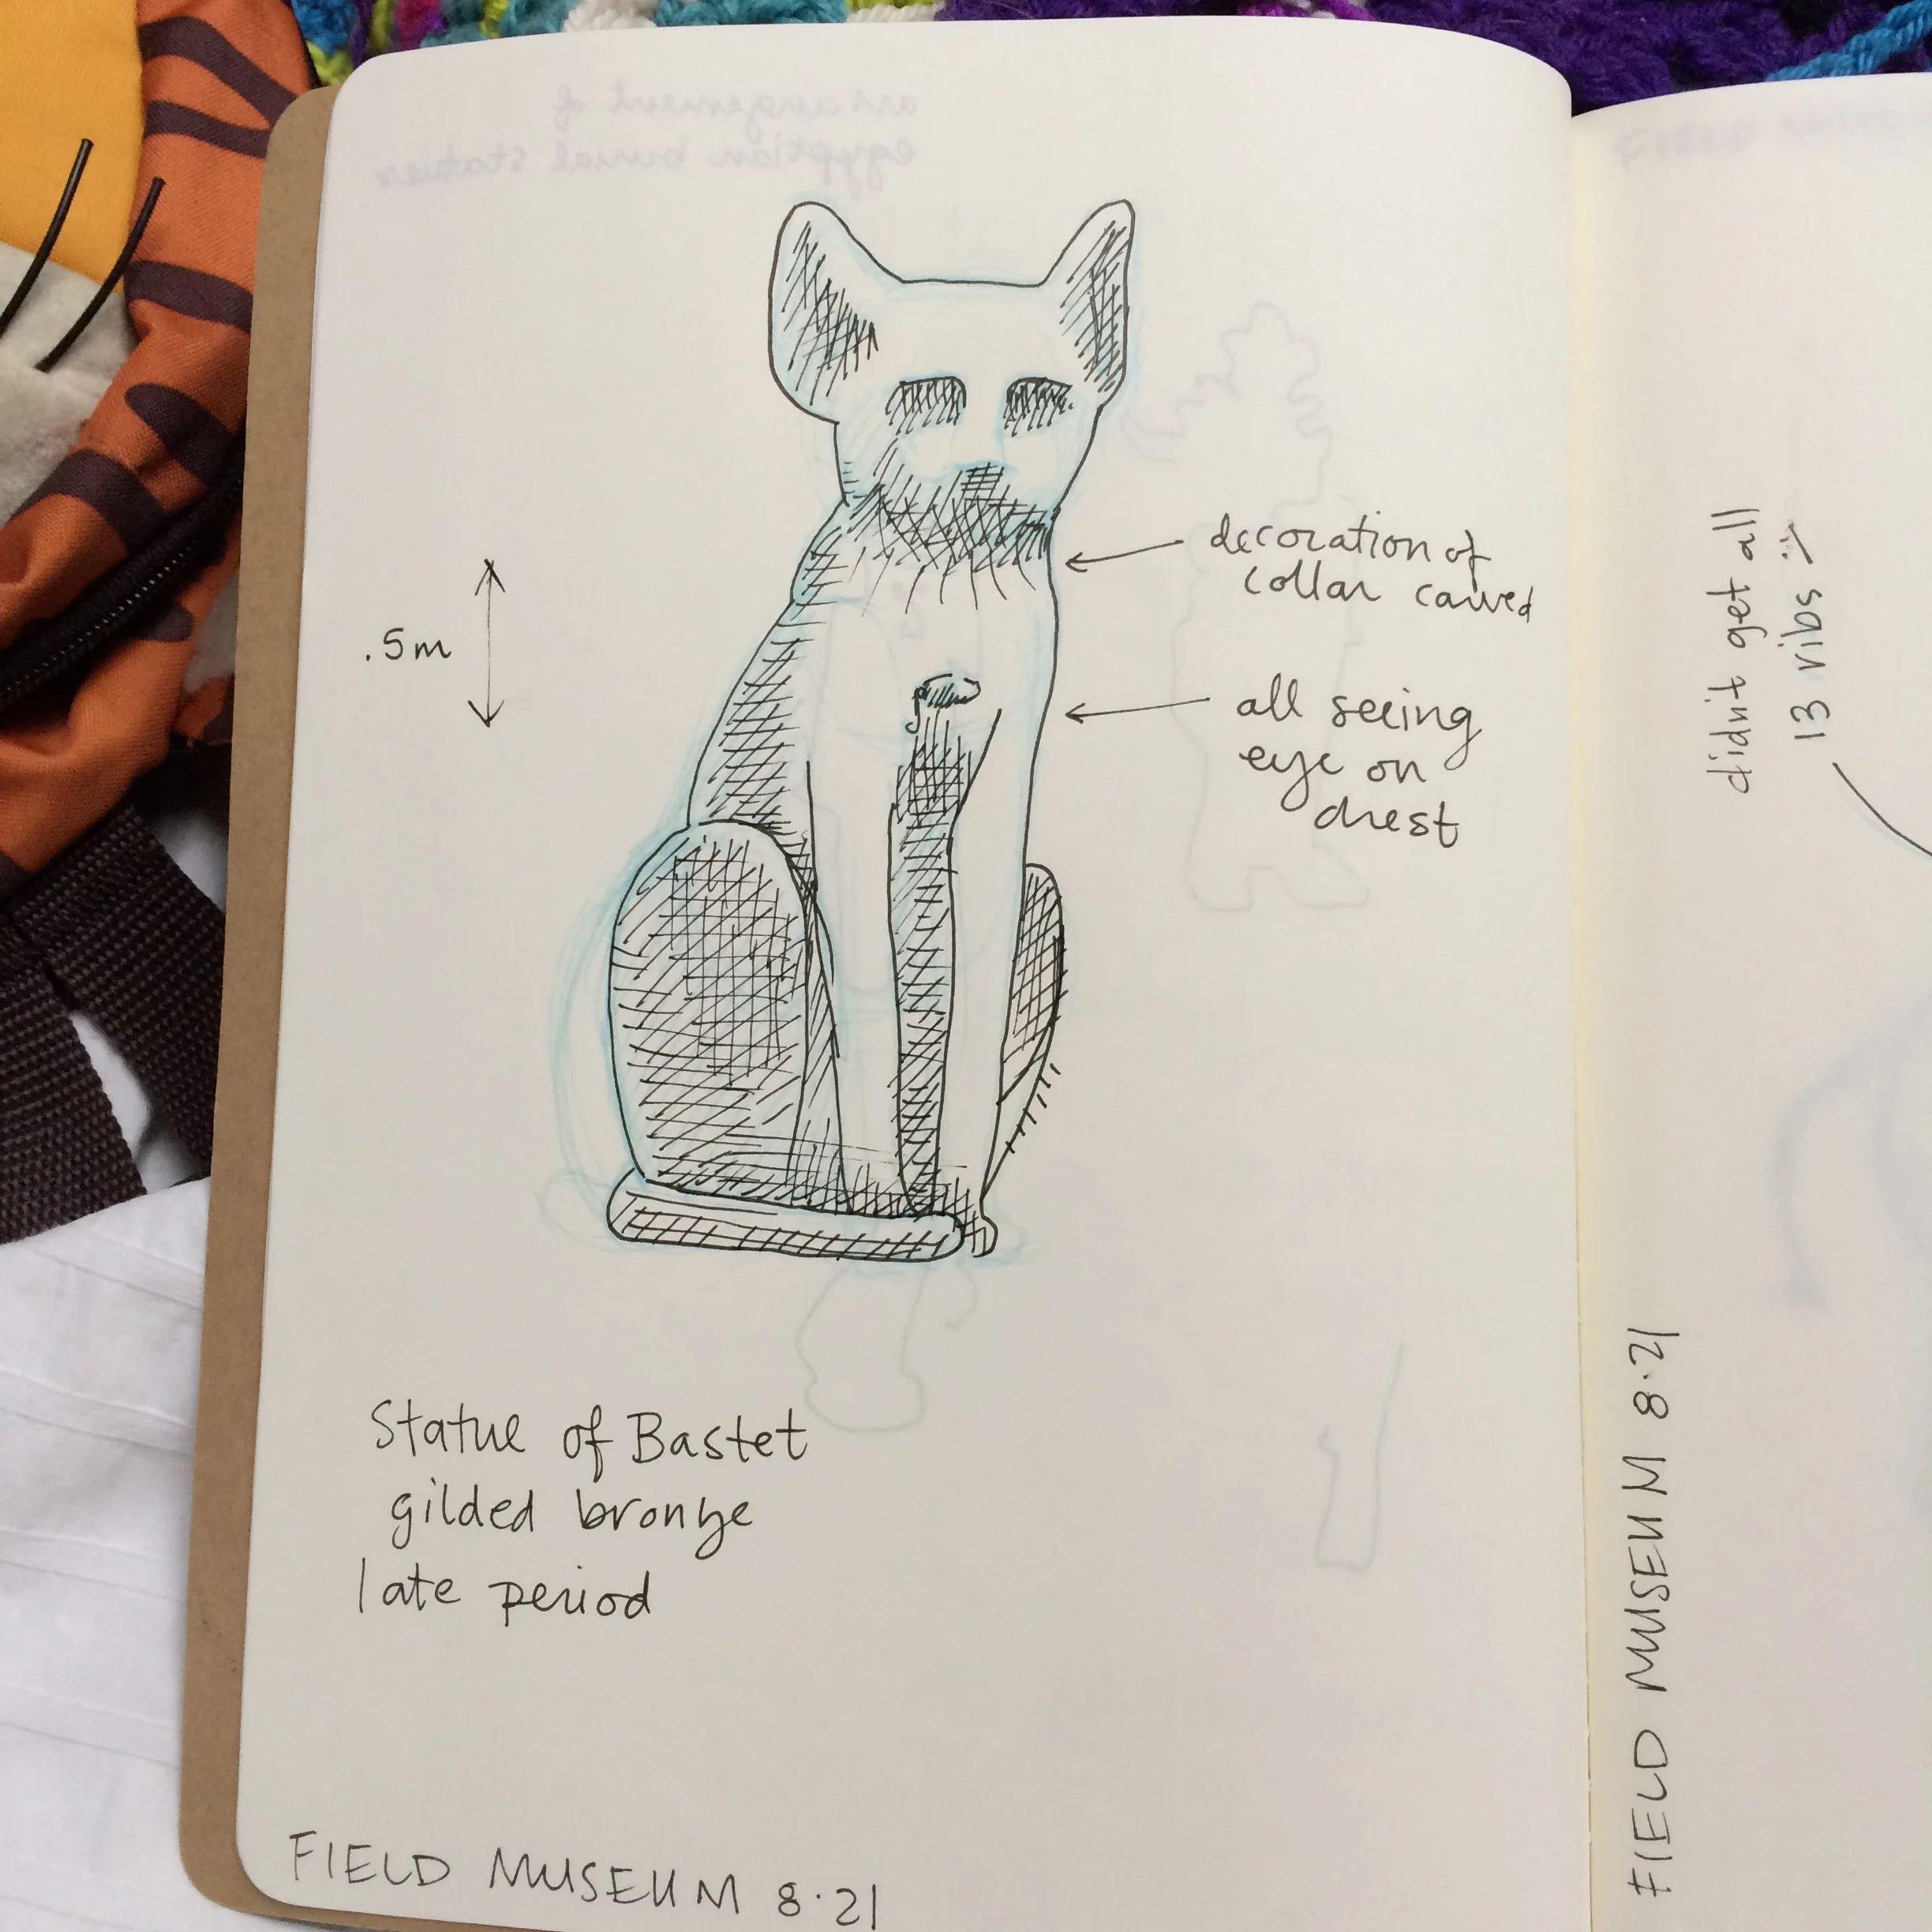 arrangement of
egyptian burial statues
decoration of
collar carved
.5m
all seeing
eye on
chest
Statue of Bastet
gilded bronze
late period
FIELD MUSEUM 8.21
didn't get all
13 ribs :/
FIELD MUSEUM 8.21